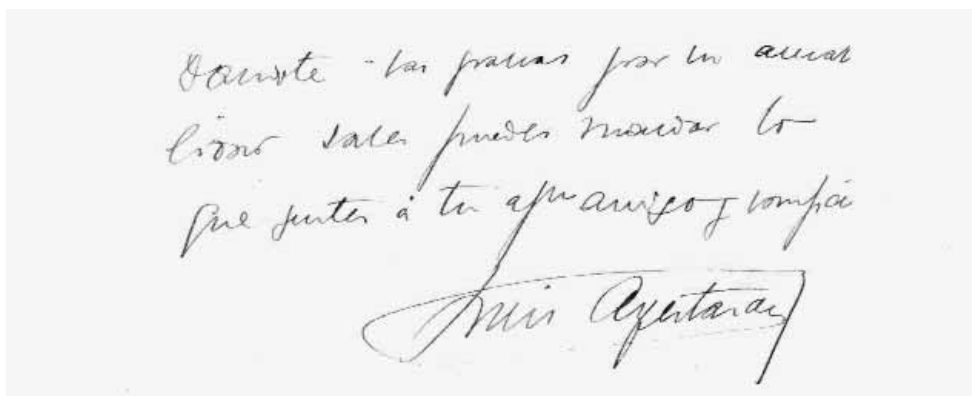 Damote las gracias por tu amab
sabes puedes mandar lo
que gustes á tu afmo amigo y compª
Luis Ayestaran